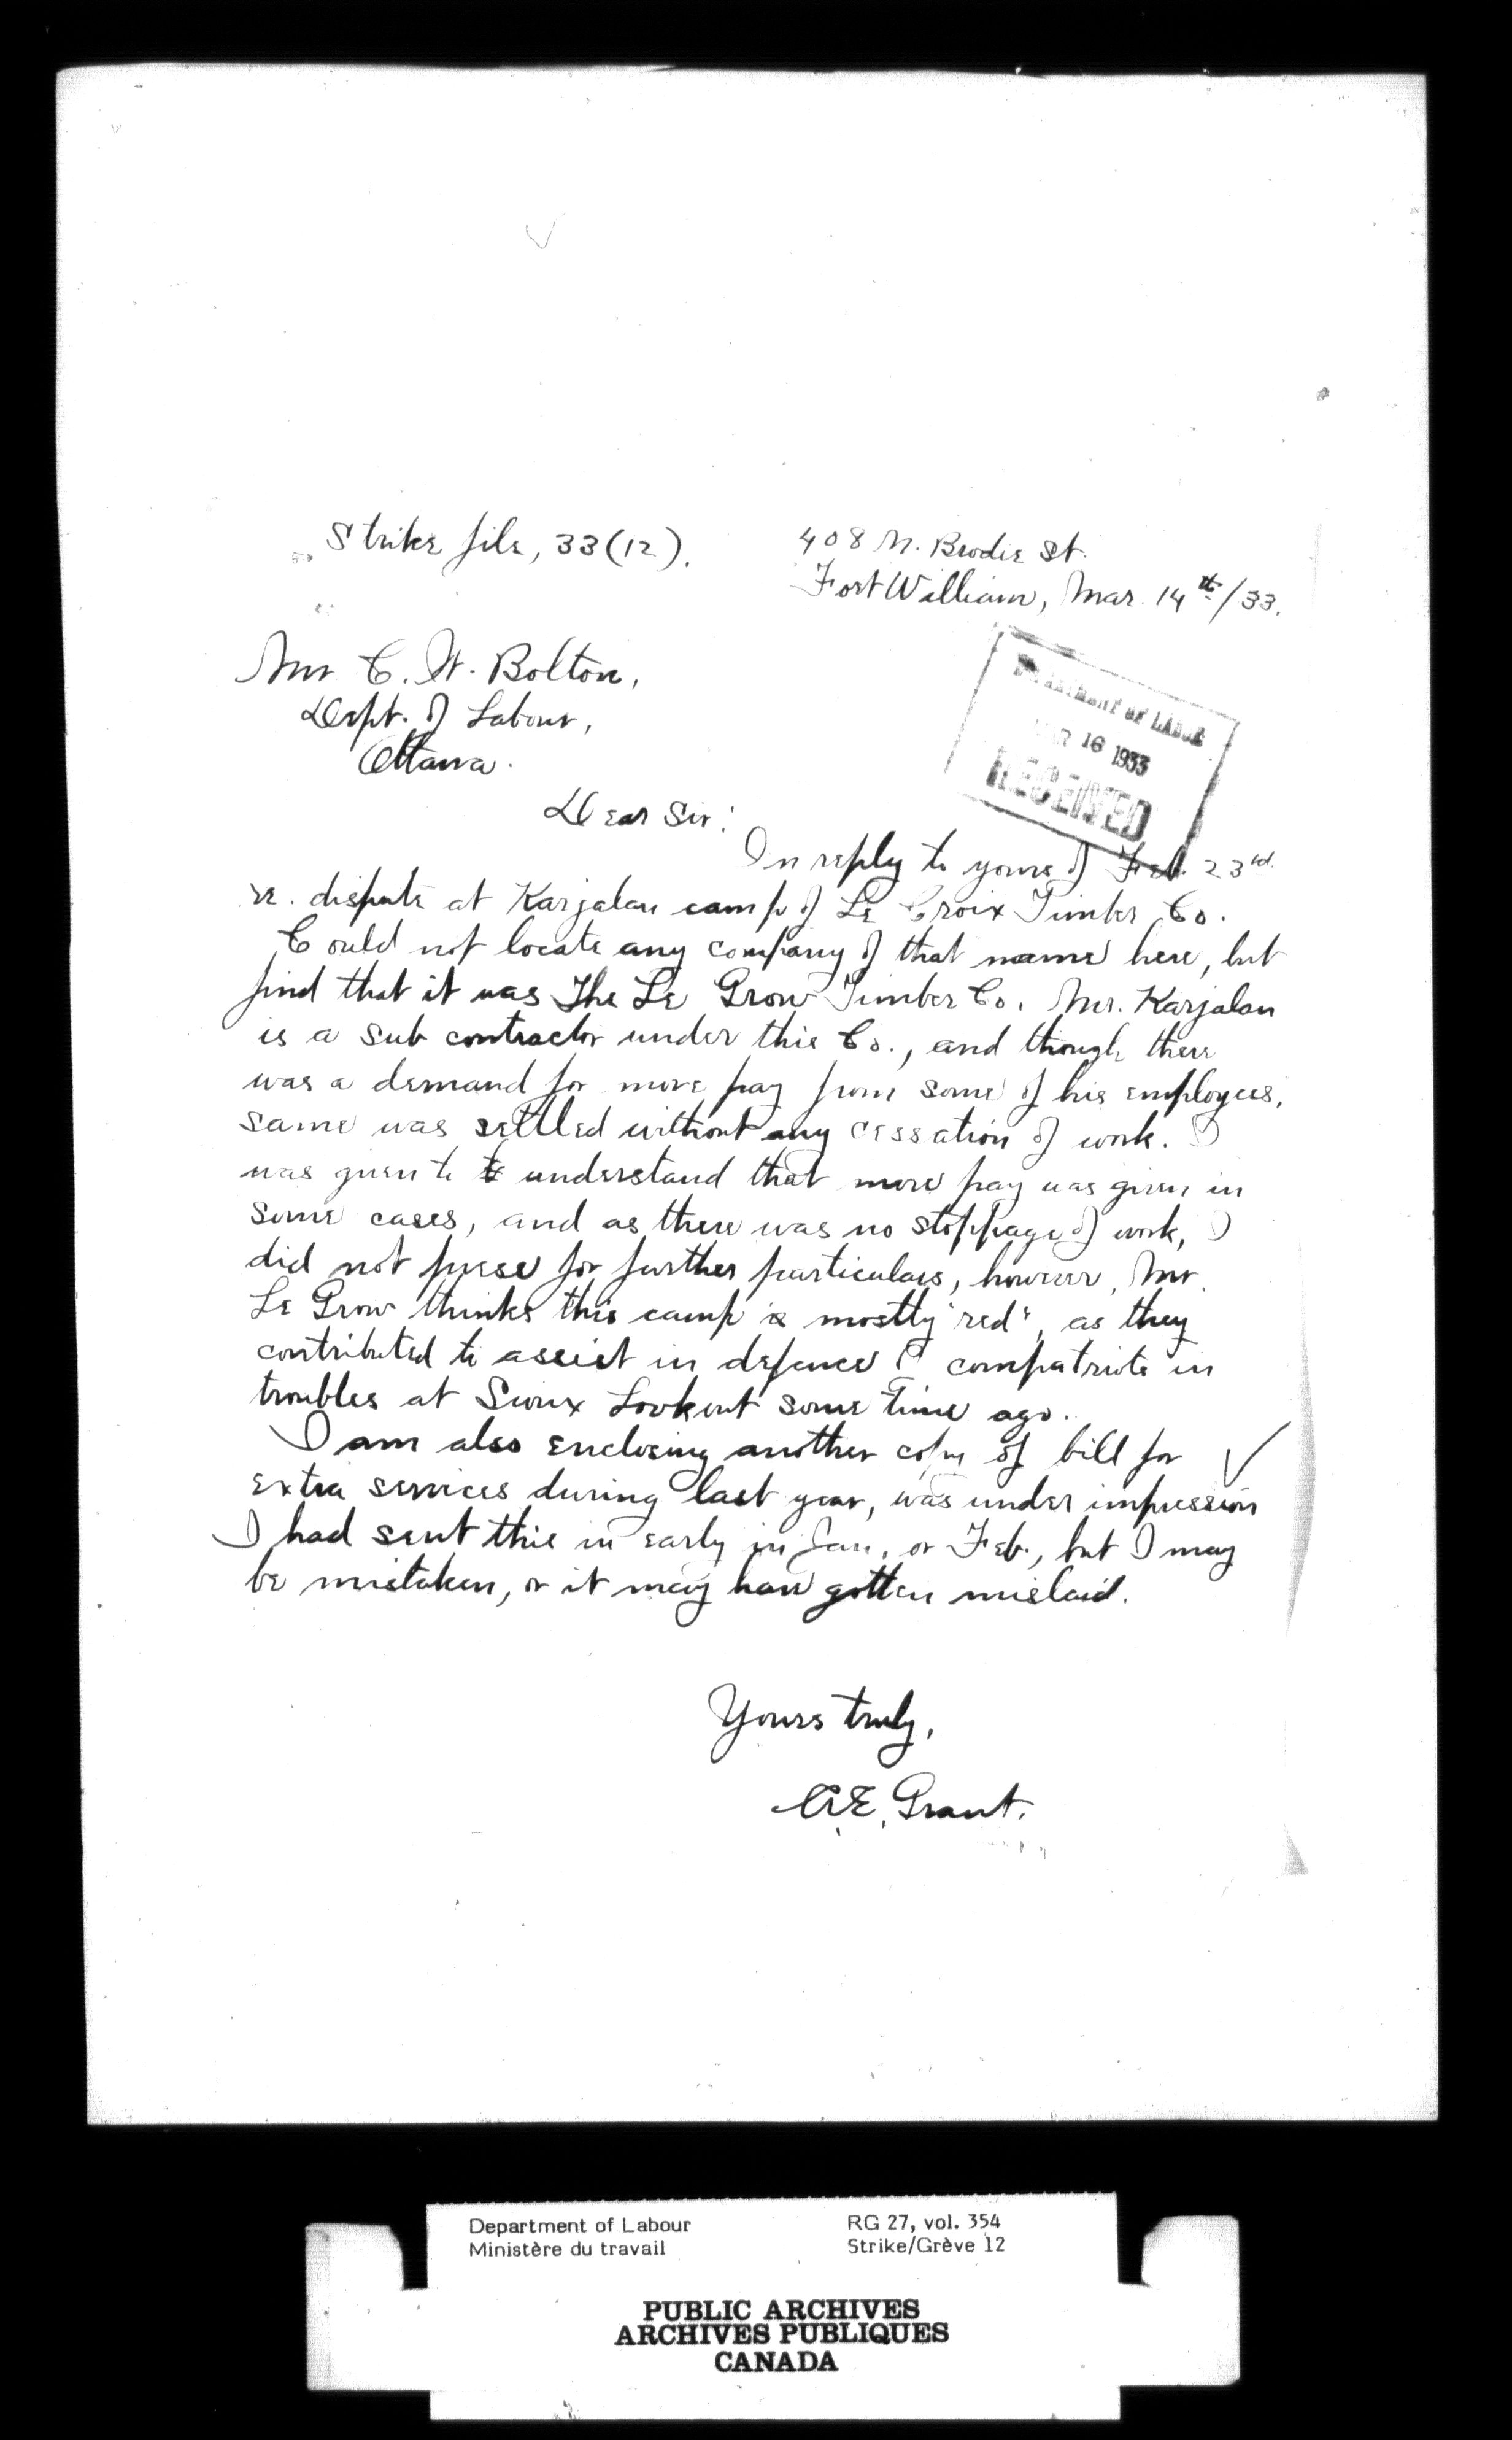 Strike file, 33(12).
408 N. Brodie St.
Fort William, Mar. 14th/33.
Mr. C. W. Bolton,
Dept. of Labour,
Ottawa.
DEPARTMENT OF LABOUR
MAR 16 1933
RECEIVED
Dear Sir:
In reply to yours of Feb. 23rd.
re. dispute at Karjalan camp of Le Croix Timber Co.
Could not locate any company of that name here, but
find that it was The Le Grow Timber Co. Mr. Karjalan
is a sub contractor under this Co., and though there
was a demand for more pay from some of his employees,
same was settled without any cessation of work. I
was given to to understand that more pay was given in
some cases, and as there was no stoppage of work, I
did not press for further particulars, however, Mr.
Le Grow thinks this camp is mostly "red", as they
contributed to assist in defence of compatriots in
troubles at Sioux Lookout some time ago.
I am also enclosing another copy of bill for
extra services during last year, was under impression
I had sent this in early in Jan. or Feb., but I may
be mistaken, or it may have gotten mislaid.
Yours truly,
A.E. Grant.
Department of Labour
Ministère du travail
RG 27, vol. 354
Strike/Grève 12
PUBLIC ARCHIVES
ARCHIVES PUBLIQUES
CANADA